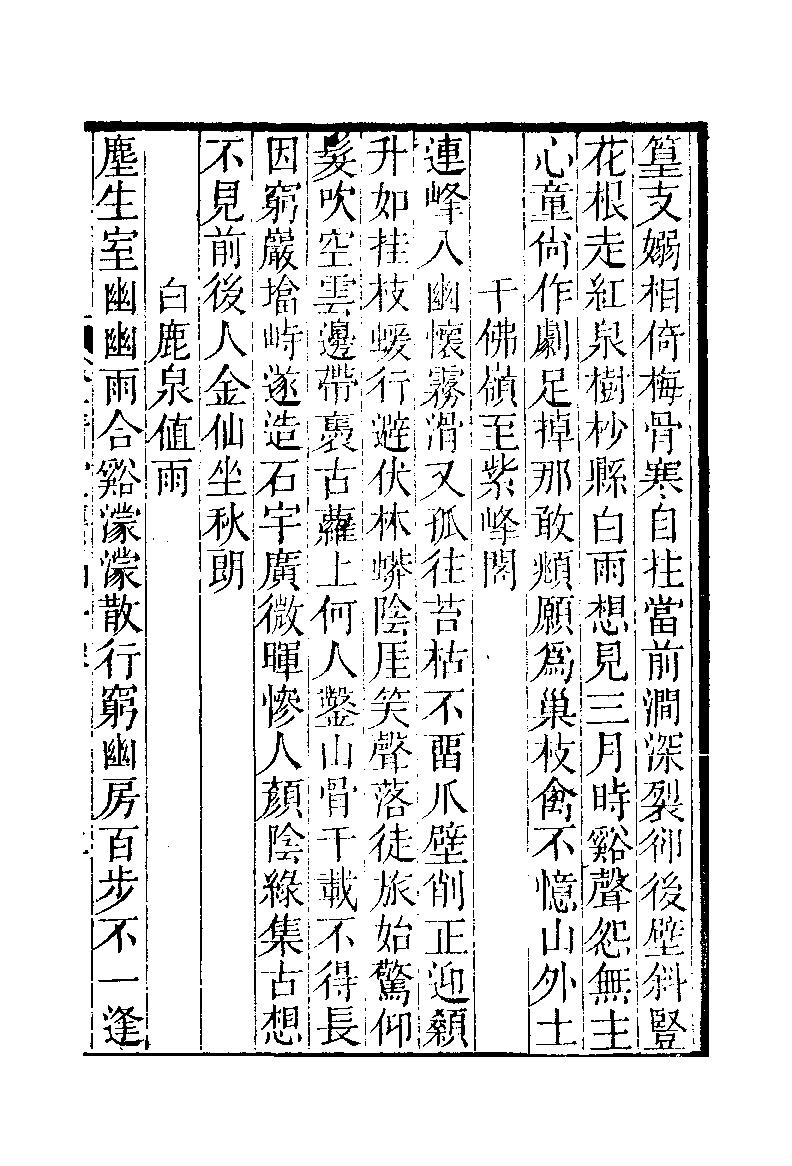 篁支嫋相倚梅骨寒自拄當前澗深裂卻後壁斜豎
花根走紅泉樹杪縣白雨想見三月時谿聲怨無主
心童尙作劇足掉那敢頫願爲巢枝禽不憶山外土
千佛嶺至紫峰閣
連峰入幽懷霧滑又孤往苔枯不畱爪壁削正迎顙
升如挂枝蝯行避伏林蟒陰厓笑聲落徒旅始驚仰
髮吹空雲邊帶裹古蘿上何人鑿山骨千載不得長
因窮嚴墖峙遂造石宇廣微暉慘人顏陰綠集古想
不見前後人金仙坐秋朗
白鹿泉値雨
塵生室幽幽雨合谿濛濛散行窮幽房百步不一逢